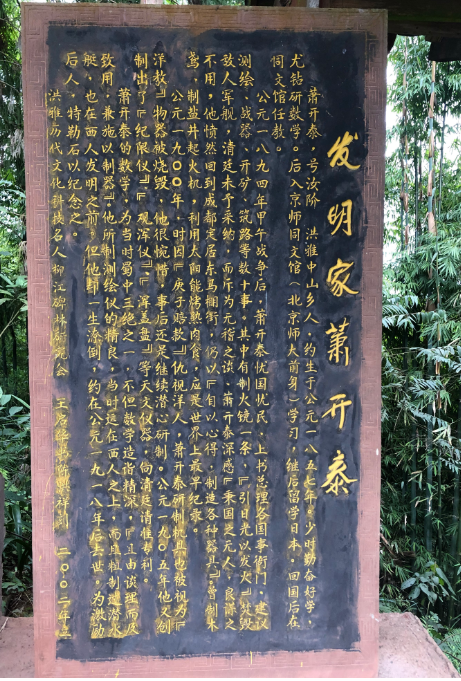 发明家萧开泰
萧开泰，号汝阶，洪雅中山乡人，约生于公元一八五七年。少时勤奋好学，
尤钻研数学。后入京师同文馆（北京师大前身）学习，继后留学日本，回国后在
同文馆任教。
公元一八九四年甲午战争后，萧开泰忧国忧民，上书总理各国事衙门，建议
测绘、战器、开矿、筑路等数十事。其中有制火镜一条，『引日光以发火』焚毁
敌人军舰，清廷未予采纳，而斥为无稽之谈、萧开泰深感『秉国乏元人，良谋之
不用，他愤然回到成都定居东马棚街，仍以『自以心得，制造各种器具』曾制木
鸢，制盐井起火机，利用太阳能烤熟肉食，应是世界上最早纪录。
公元一九〇〇年，时因『庚子赔款』仇视洋人，萧开泰研制机具也被视为『
洋教』物器被烧毁，他很惋惜，事后还是继续潜心研制。公元一九〇五年他又创
制出了『纪限仪』『观浑仪』『浑盖盘』等天文仪器，向清廷请准专利。
萧开泰的数学，为当时蜀中三绝之一，不但数学造旨精深，『且由谈理而及
致用，兼施以制器』。他所制测绘仪的精良，当时远在西人之上，而制潜水
艇，也在西人发明之前。但他却一生潦倒，约在公元一九一八年后去世。为激励
后人，特勒石以纪念之。
洪雅历代文化科技名人柳江碑林研究会 王书 祥刻 二〇〇二年立